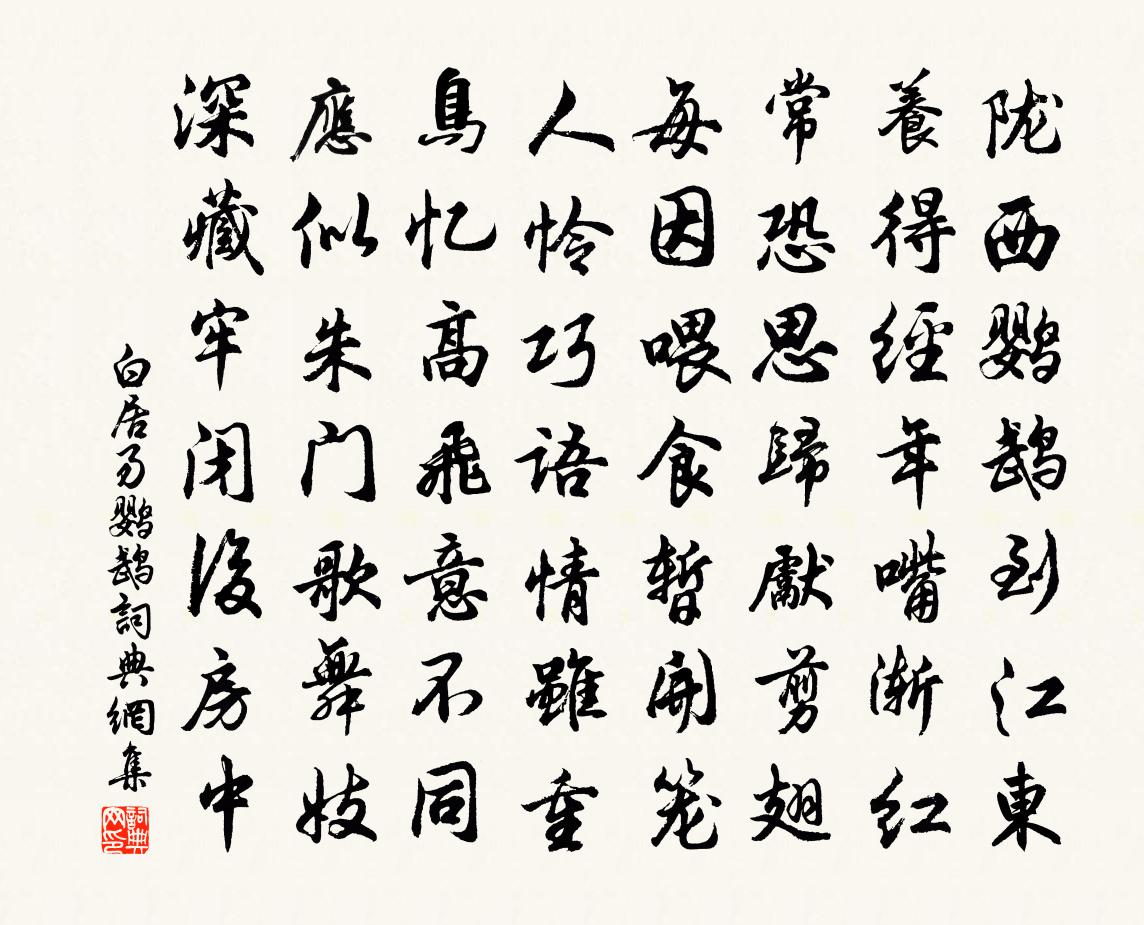 陇西鹦鹉到江東
養得經年嘴渐红
常恐思歸獻剪翅
每因喂食暫開笼
人怜巧語情雖重
鳥忆高飛意不同
應似朱门歌舞妓
深藏牢闭後房中
白居易鹦鹉詞典網集
詞典网印